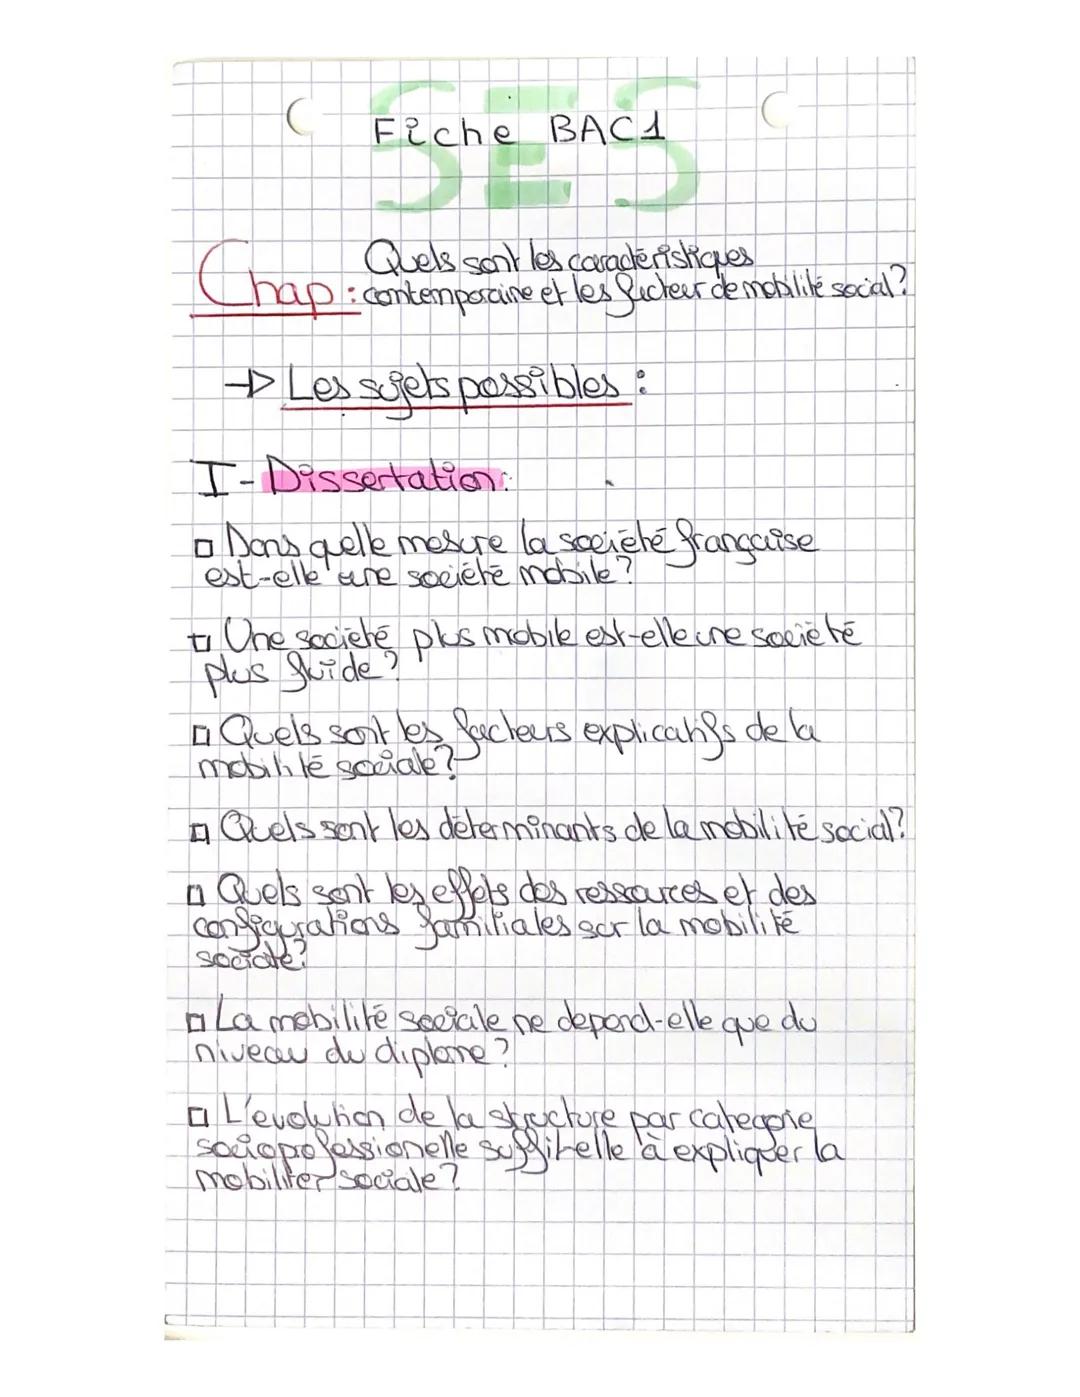 SES
Fiche BAC1
Quels sont les caractéristiques
Chap : contemporaine et les facteur de mobilité social?
→ Les sujets possibles :
I - Dissertation:
□ Dans quelle mesure la société française
est-elle une société mobile?
□ Une société plus mobile est-elle une société
plus fluide?
□ Quels sont les facteurs explicatifs de la
mobilité sociale?
□ Quels sont les déterminants de la mobilité social?
□ Quels sont les effets des ressources et des
configurations familiales sur la mobilité
sociale?
□ La mobilité sociale ne depend-elle que du
niveau du diplome?
□ L'evolution de la structure par categorie
socioprofessionelle suffit elle à expliquer la
mobiliter sociale?